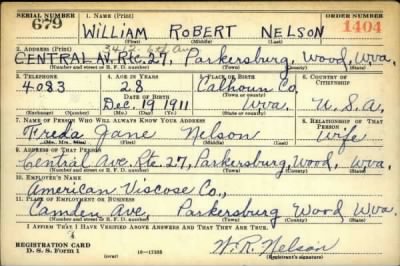 SERIAL NUMBER 1. NAME (Print) ORDER NUMBER
679 WILLIAM ROBERT NELSON 1404
(First) (Middle) (Last)
2. ADDRESS (Print) 3412-6th Av
CENTRAL AV. Rte. 27, Parkersburg, Wood, Wva.
(Number and street or R. F. D. number) (Town) (County) (State)
3. TELEPHONE 4. AGE IN YEARS 5. PLACE OF BIRTH 6. COUNTRY OF CITIZENSHIP
4083 28 Calhoun Co.
DATE OF BIRTH (Town or county)
Dec. 19 1911 Wva. U.S.A.
(Exchange) (Number) (Mo.) (Day) (Yr.) (State or country)
7. NAME OF PERSON WHO WILL ALWAYS KNOW YOUR ADDRESS 8. RELATIONSHIP OF THAT PERSON
Freda Jane Nelson Wife
(Mr., Mrs., Miss) (First) (Middle) (Last)
9. ADDRESS OF THAT PERSON
Central Ave. Rte. 27, Parkersburg, Wood, Wva.
(Number and street or R. F. D. number) (Town) (County) (State)
10. EMPLOYER'S NAME
American Viscose Co.,
11. PLACE OF EMPLOYMENT OR BUSINESS
Camden Ave Parkersburg Wood Wva.
(Number and street or R. F. D. number) (Town) (County) (State)
I AFFIRM THAT I HAVE VERIFIED ABOVE ANSWERS AND THAT THEY ARE TRUE.
REGISTRATION CARD
D. S. S. Form 1 (over) W. R. Nelson
(Registrant's signature)